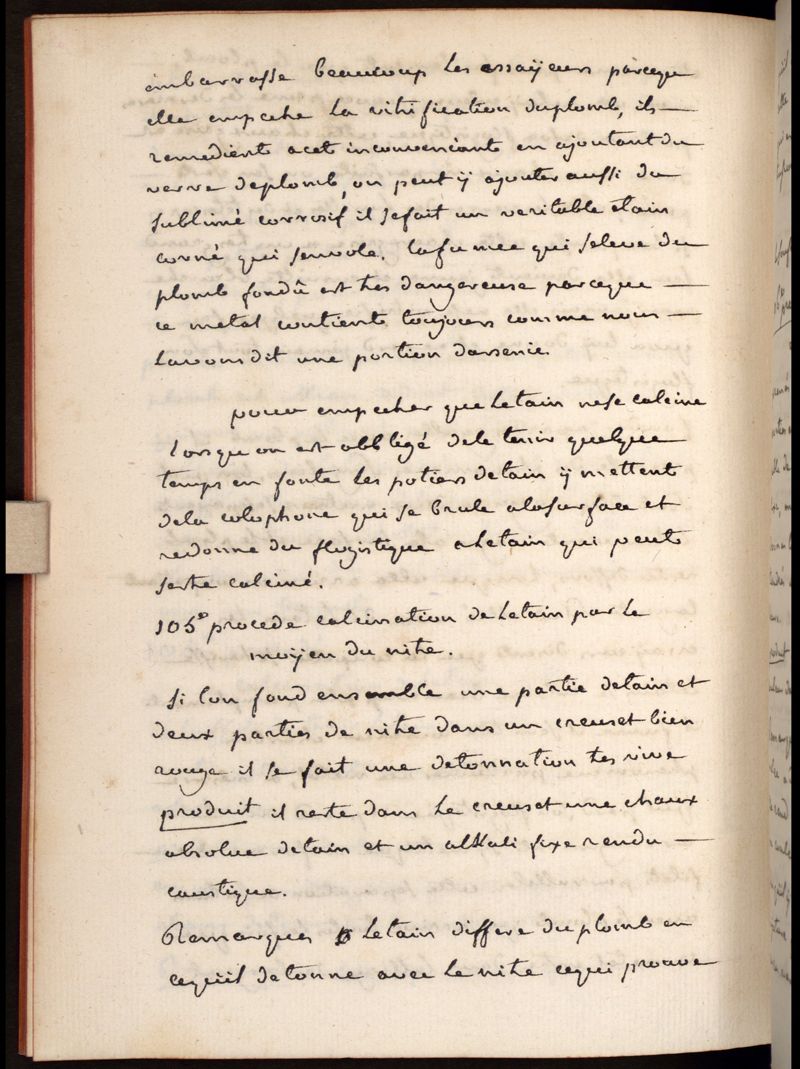 embarrasse beaucoup les essaÿeurs parceque
elle empeche la vitrification duplomb, ils —
remedient acet inconvenient en ajoutant du
verre deplomb, on peut ÿ ajouter aussi du
sublimé corrosif il sefait un veritable etain
corné qui senvole. lafumee qui seleve du
plomb fondû est tres dangereuse parceque —
ce metal contient toujours comme nous —
lavons dit une portion darsenic
pour empecher que letain nese calcine
lorsqu on est obbligé dele tenir quelque
temps en fonte les potiers detain ÿ mettent
dela colophone qui se brule alasurface et
redonne du flogistique aletain qui peut
setre calciné.
105e procede calcination de letain par le
moÿen du nitre.
si lon fond ensemble une partie detain et
deux parties de nitre dans un creuset bien
rouge il se fait une detonnation tres vive
produit il reste dans le creuset une chaux
absolue detain et un alkali fixe rendu —
caustique.
Remarques letain differe du plomb en
cequil detonne avec le nitre cequi prouve